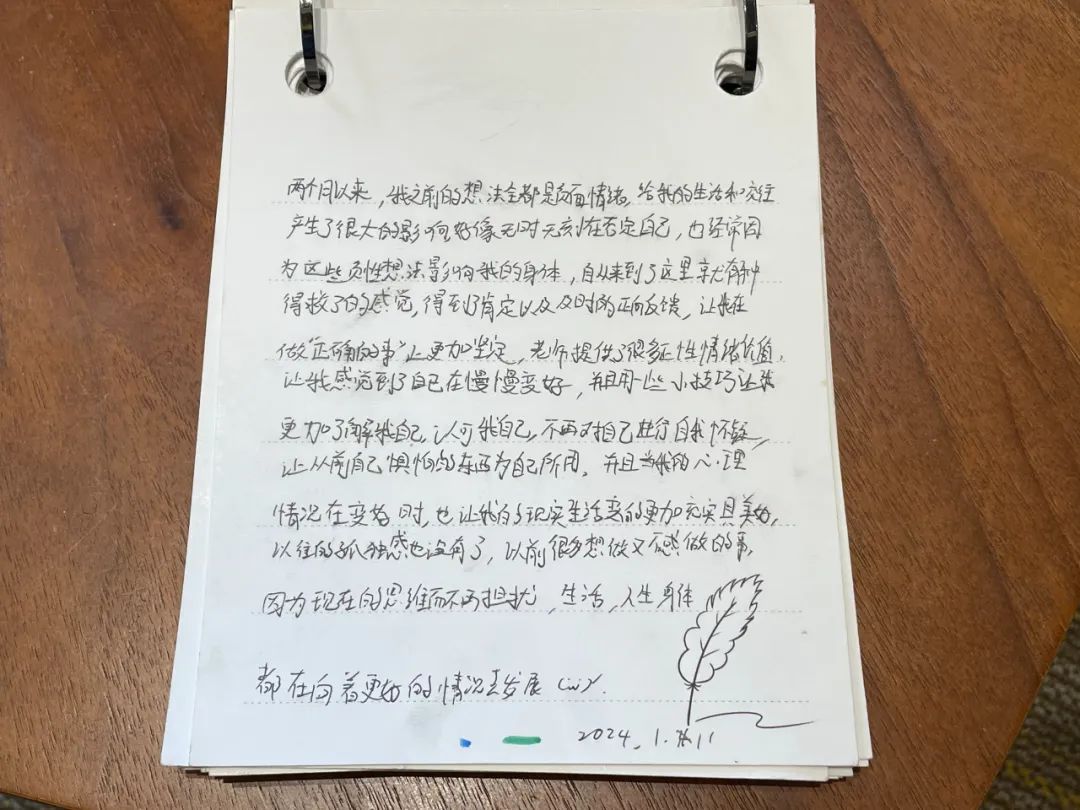 两个月以来，我之前的想法全都是负面情绪，给我的生活和交往
产生了很大的影响，好像无时无刻在否定自己，也经常因
为这些负性想法影响我的身体，自从来到了这里就有种
得救了的感觉，得到了肯定以及及时的正向反馈，让我在
做“正确的事”上更加坚定，老师提供了很多正性情绪价值，
让我感觉到了自己在慢慢变好，并且用一些小技巧让我
更加了解我自己，认可我自己，不再对自己进行自我怀疑，
让从前自己惧怕的东西为自己所用，并且当我的心理
情况在变好时，也让我的现实生活变的更加充实且美好，
以往的孤独感也没有了，以前很多想做又不敢做的事，
因为现在的思维而不再担扰，生活，人生身体
都在向着更好的情况去发展
2024.1.11